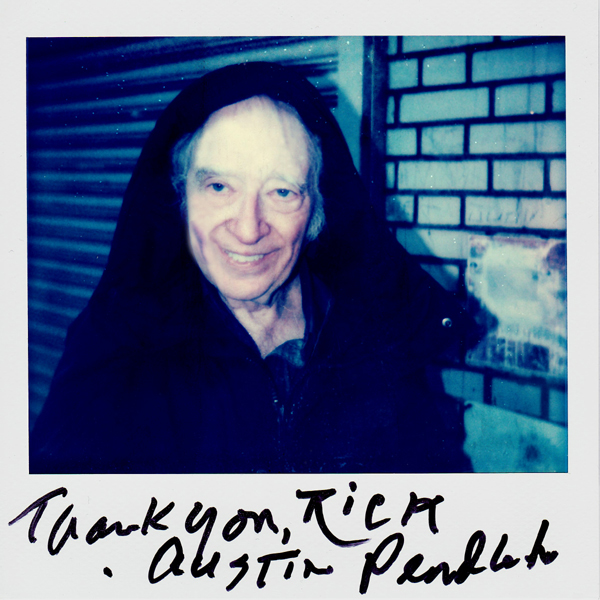 Thank you, Rick
. Austin Pendleton